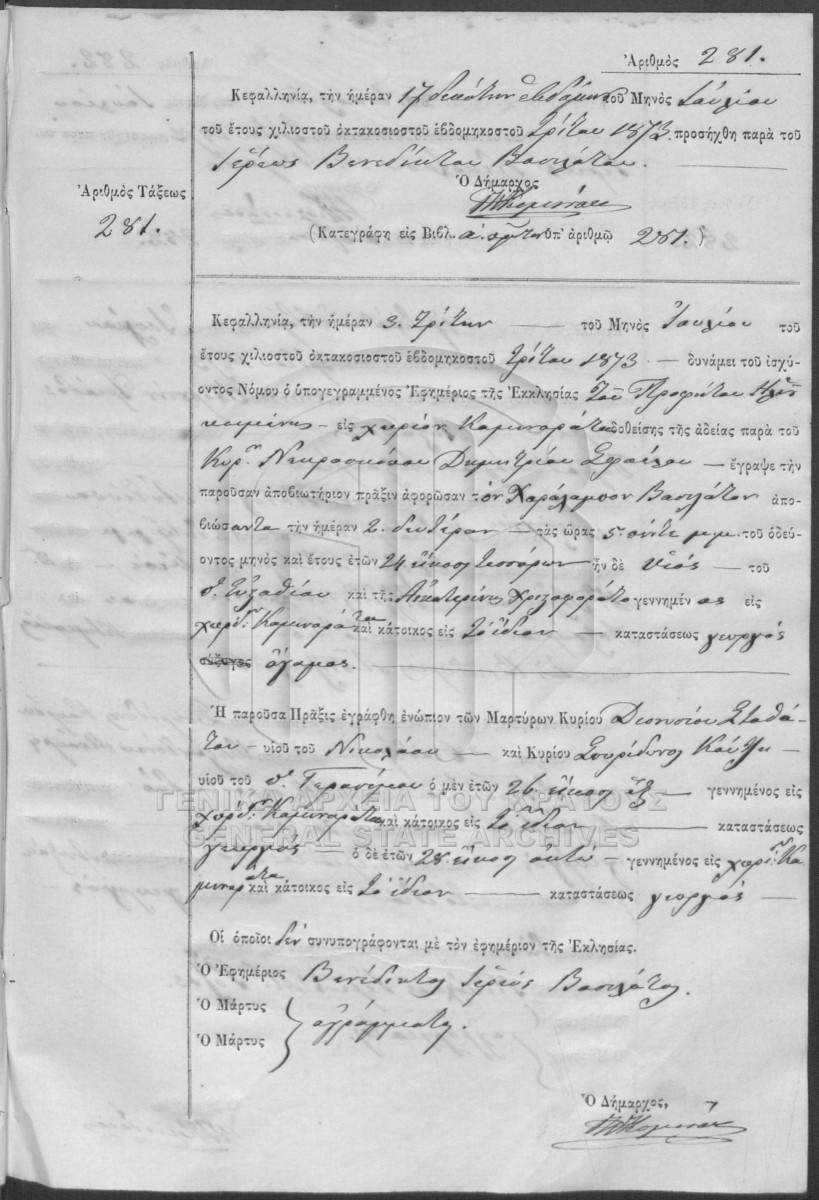 Ἀριθμὸς 281.
Κεφαλληνίᾳ, τὴν ἡμέραν 17 δεκάτην ἑβδόμην τοῦ Μηνὸς Ἰουλίου
τοῦ ἔτους χιλιοστοῦ ὀκτακοσιοστοῦ ἑβδομηκοστοῦ τρίτου 1873. προσήχθη παρὰ τοῦ
Ἱερέως Βενεδίκτου Βασιλάτου.
Ὁ Δήμαρχος
Ἀριθμὸς Τάξεως
281.
(Κατεγράφη εἰς Βιβλ. ὑπ' ἀριθμῷ 281.)
Κεφαλληνίᾳ, τὴν ἡμέραν 3. τρίτην — τοῦ Μηνὸς Ἰουλίου τοῦ
ἔτους χιλιοστοῦ ὀκτακοσιοστοῦ ἑβδομηκοστοῦ τρίτου 1873 — δυνάμει τοῦ ἰσχύ-
οντος Νόμου ὁ ὑπογεγραμμένος Ἐφημέριος τῆς Ἐκκλησίας τοῦ Προφήτου Ἠλιοῦ
κειμένης — εἰς χωρίον Καμιναράτα δοθείσης τῆς ἀδείας παρὰ τοῦ
Κυρ. Νεκροσκόπου Δημητρίου — ἔγραψε τὴν
παροῦσαν ἀποβιωτήριον πρᾶξιν ἀφορῶσαν τὸν Χαράλαμπον Βασιλάτον ἀπο-
βιώσαντα τὴν ἡμέραν 2. δευτέραν — τὰς ὥρας 5. πέντε μ.μ. τοῦ ὁδεύ-
οντος μηνὸς καὶ ἔτους ἐτῶν 24 εἴκοσι τεσσάρων ἦν δὲ υἱός — τοῦ
π. Εὐσταθίου καὶ τῆς Αἰκατερίνης γεννημένος εἰς
χωρίον Καμιναράτα καὶ κάτοικος εἰς τὸ ἴδιον — καταστάσεως γεωργός
σύζυγος ἄγαμος.
Ἡ παροῦσα Πρᾶξις ἐγράφθη ἐνώπιον τῶν Μαρτύρων Κυρίου Διονυσίου Σταθά-
του — υἱοῦ τοῦ Νικολάου — καὶ Κυρίου Σπυρίδωνος
υἱοῦ τοῦ π. Γερασίμου ὁ μὲν ἐτῶν 26. εἴκοσι ἕξ — γεννημένος εἰς
χωρίον Καμιναράτα καὶ κάτοικος εἰς τὸ ἴδιον — καταστάσεως
γεωργός — ὁ δὲ ἐτῶν 28. εἴκοσι ὀκτώ — γεννημένος εἰς χωρίον Κα-
μιναράτα καὶ κάτοικος εἰς τὸ ἴδιον — καταστάσεως γεωργός —
ΓΕΝΙΚΑ ΑΡΧΕΙΑ ΤΟΥ ΚΡΑΤΟΥΣ
GENERAL STATE ARCHIVES
Οἱ ὁποῖοι δὲν συνυπογράφονται μὲ τὸν ἐφημέριον τῆς Ἐκλησίας.
Ὁ Ἐφημέριος Βενέδικτος Ἱερεὺς Βασιλάτος.
Ὁ Μάρτυς
Ὁ Μάρτυς ἀγράμματοι.
Ὁ Δήμαρχος,